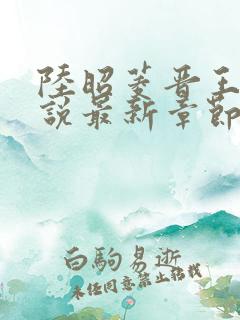 陸昭菱晋王
說最新章節
白駒易逝
未经同意禁止转载